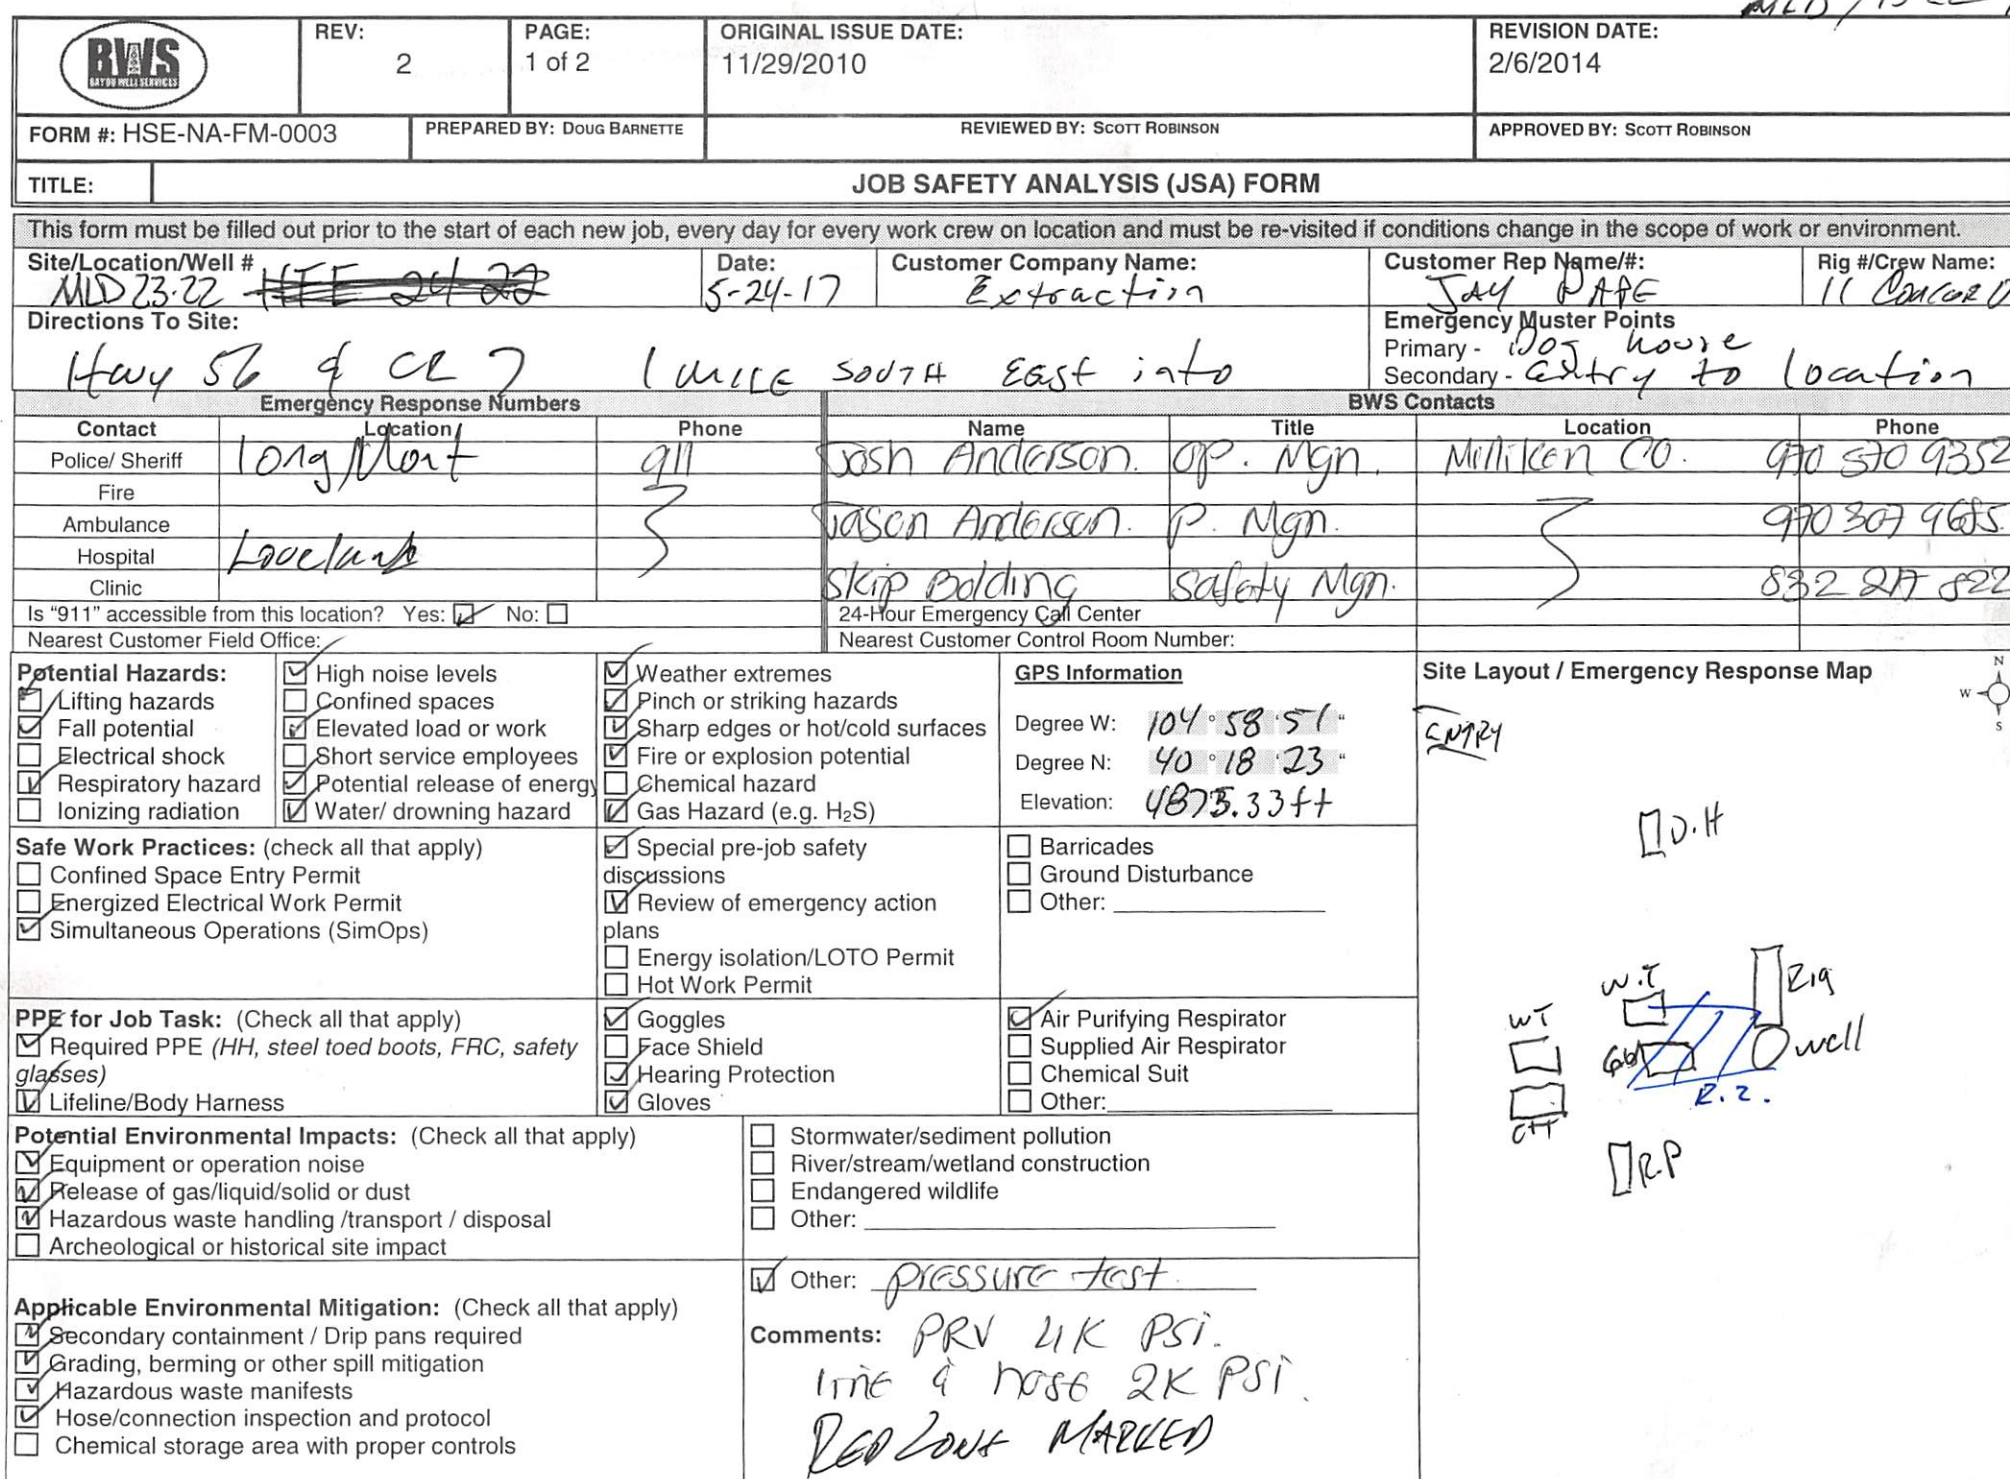 BWS
BAYOU WELL SERVICES
REV:
2
PAGE:
1 of 2
ORIGINAL ISSUE DATE:
11/29/2010
REVISION DATE:
2/6/2014
FORM #: HSE-NA-FM-0003
PREPARED BY: DOUG BARNETTE
REVIEWED BY: SCOTT ROBINSON
APPROVED BY: SCOTT ROBINSON
TITLE:
JOB SAFETY ANALYSIS (JSA) FORM
This form must be filled out prior to the start of each new job, every day for every work crew on location and must be re-visited if conditions change in the scope of work or environment.
Site/Location/Well #
MLD 23-22
Date:
5-24-17
Customer Company Name:
Extraction
Customer Rep Name/#:
JAY PAPE
Rig #/Crew Name:
11 Concord
Directions To Site:
Hwy 56 & CR 7 1 MILE SOUTH EAST into
Emergency Muster Points
Primary - Dog house
Secondary - Entry to location
Emergency Response Numbers
BWS Contacts
Contact Location Phone
Name Title Location Phone
Police/ Sheriff Long Mont 911
Josh Anderson. OP. Mgn. Milliken CO. 970 570 9352
Fire
Ambulance
Jason Anderson. P. Mgn. 970 307 9685
Hospital Loveland
Clinic
Skip Bolding Safety Mgn. 832 217 822
Is "911" accessible from this location? Yes: No:
24-Hour Emergency Call Center
Nearest Customer Field Office:
Nearest Customer Control Room Number:
Potential Hazards:
Lifting hazards
Fall potential
Electrical shock
Respiratory hazard
Ionizing radiation
High noise levels
Confined spaces
Elevated load or work
Short service employees
Potential release of energy
Water/ drowning hazard
Weather extremes
Pinch or striking hazards
Sharp edges or hot/cold surfaces
Fire or explosion potential
Chemical hazard
Gas Hazard (e.g. H2S)
GPS Information
Degree W: 104 ° 58 ' 51 "
Degree N: 40 ° 18 ' 23 "
Elevation: 4873.33ft
Site Layout / Emergency Response Map
N
W
S
ENTRY
D.H
W.T
Rig
WT
well
R.Z.
R.P
Safe Work Practices: (check all that apply)
Confined Space Entry Permit
Energized Electrical Work Permit
Simultaneous Operations (SimOps)
Special pre-job safety
discussions
Review of emergency action
plans
Energy isolation/LOTO Permit
Hot Work Permit
Barricades
Ground Disturbance
Other:
PPE for Job Task: (Check all that apply)
Required PPE (HH, steel toed boots, FRC, safety
glasses)
Lifeline/Body Harness
Goggles
Face Shield
Hearing Protection
Gloves
Air Purifying Respirator
Supplied Air Respirator
Chemical Suit
Other:
Potential Environmental Impacts: (Check all that apply)
Equipment or operation noise
Release of gas/liquid/solid or dust
Hazardous waste handling /transport / disposal
Archeological or historical site impact
Stormwater/sediment pollution
River/stream/wetland construction
Endangered wildlife
Other:
Applicable Environmental Mitigation: (Check all that apply)
Secondary containment / Drip pans required
Grading, berming or other spill mitigation
Hazardous waste manifests
Hose/connection inspection and protocol
Chemical storage area with proper controls
Other: pressure test.
Comments: PRV 4K PSI.
line & hose 2K PSI.
RED ZONE MARKED